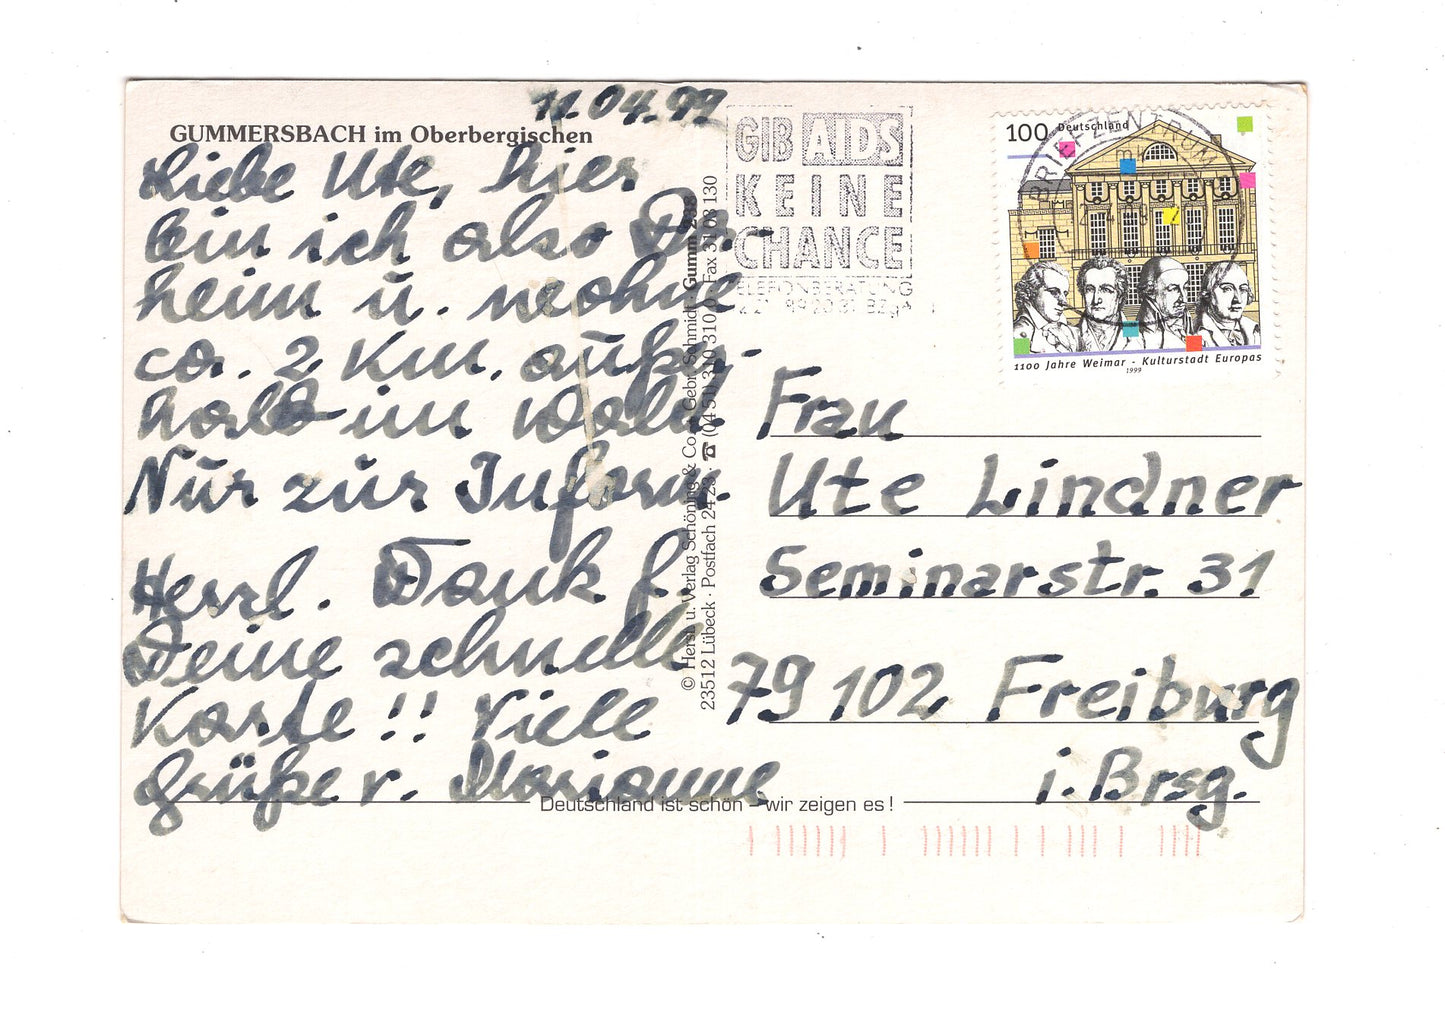 11.04.99
GUMMERSBACH im Oberbergischen
Liebe Ute, hier
bin ich also Da-
heim u. wohne
ca. 2 Km. außer-
halb im Wald.
Nur zur Inform.
Herzl. Dank f.
Deine schnelle
Karte !! Viele
Grüße v. Marianne
© Herst. u. Verlag Schöning & Co. + Gebr. Schmidt · Gumm 238
23512 Lübeck · Postfach 24 23 · ☎ (04 51) 310 310 · Fax 31 03 130
GIB AIDS
KEINE
CHANCE
TELEFONBERATUNG
BRIEFZENTRUM
100 Deutschland
1100 Jahre Weimar - Kulturstadt Europas
1999
Frau
Ute Lindner
Seminarstr. 31
79102 Freiburg
i. Brsg.
Deutschland ist schön – wir zeigen es!